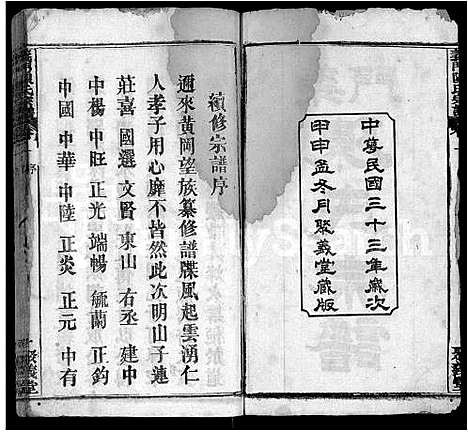 中華民國三十三年歲次
甲申孟冬月聚義堂藏版
聚義堂
續修宗譜序
邇來黃岡望族纂修譜牒風起雲湧仁
人孝子用心靡不皆然此次明山子蓮
莊喜 國選 文賢 東山 右丞 建中
中楊 中旺 正光 端暢 毓蘭 正鈞
中國 中華 中陸 正炎 正元 中有
序